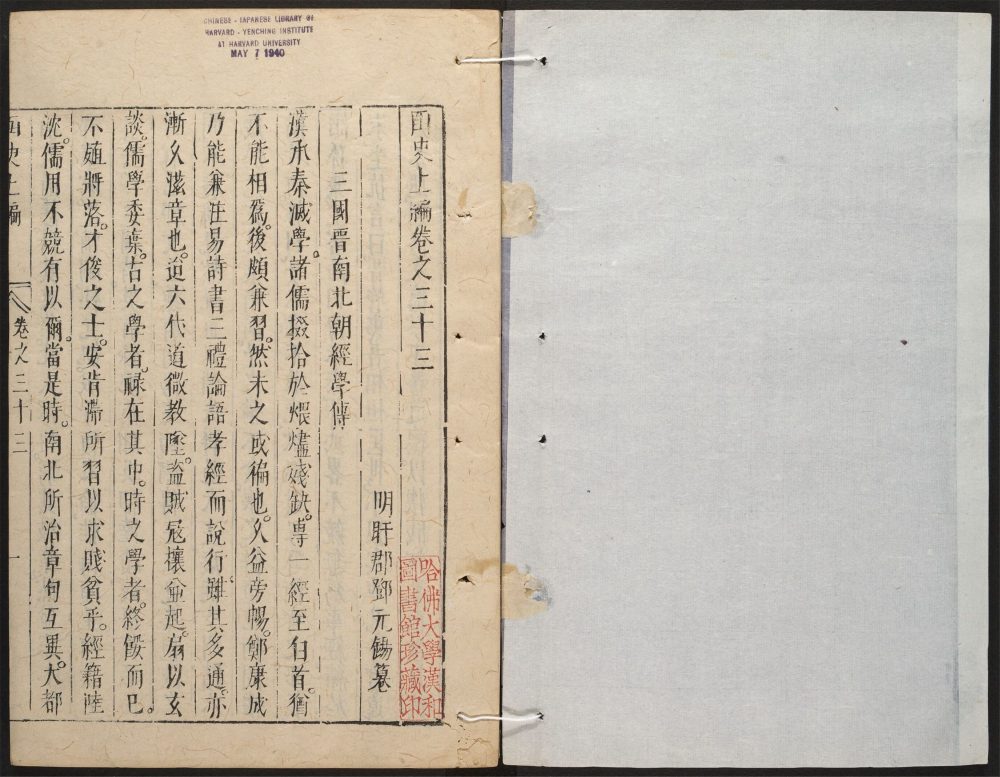 CHINESE - JAPANESE LIBRARY OF
HARVARD - YENCHING INSTITUTE
AT HARVARD UNIVERSITY
MAY 7 1940
函史上編卷之三十三
明盱郡鄧元錫纂
哈佛大學漢和
圖書館珍藏印
三國晉南北朝經學傳
漢承秦滅學。諸儒掇拾於煨燼殘缺。專一經至白首。猶
不能相為。後頗兼習。然未之或徧也。久益旁暢。鄭康成
乃能兼注易詩書三禮論語孝經而說行。雖其多通。亦
漸久滋章也。迨六代道微教墜。盜賊寇攘竝起。扇以玄
談。儒學委棄。古之學者。祿在其中。時之學者。終餒而已。
不殖將落。才俊之士。安肯滯所習以求賤貧乎。經籍陸
沈。儒用不競有以爾。當是時。南北所治章句互異。大都
函史上編
卷之三十三
一